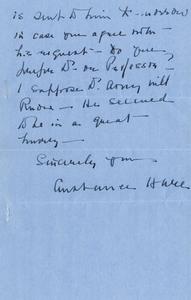 is sent to him to-morrow
in case you agree with
his request - Do you
prefer Dr. or Professor -
I suppose Dr. Avery will
know - He seemed
to be in a great
hurry -
Sincerely yours
Constance Hare